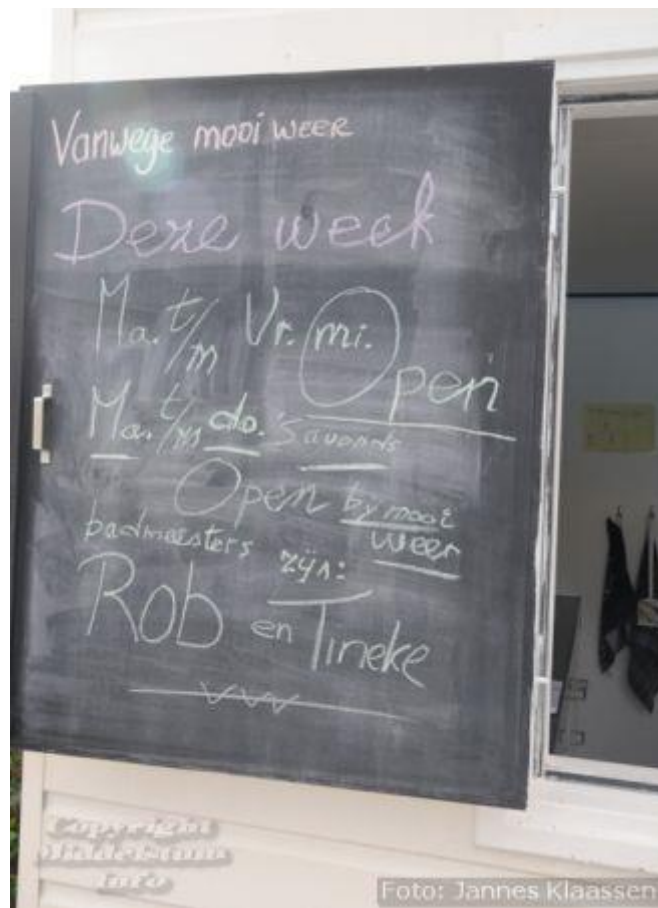 Vanwege mooi weer
Deze week
Ma. t/m Vr. mi. Open
Ma. t/m do. 's avonds
Open bij mooi weer
badmeesters zijn:
Rob en Tineke
Copyright
Middelstum
Info
Foto: Jannes Klaassen